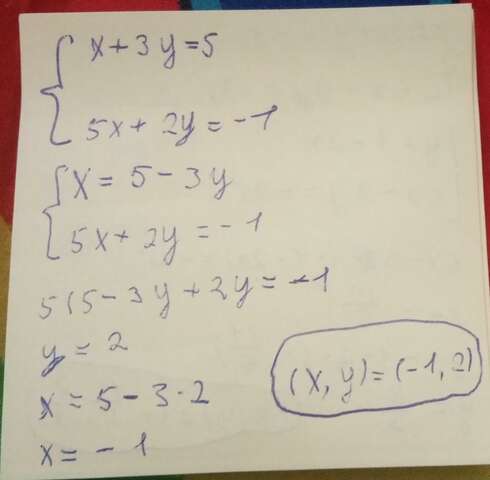 x+3y=5
5x+2y=-1
x=5-3y
5x+2y=-1
5(5-3y+2y=-1
y=2
x=5-3·2
(x,y)=(-1,2)
x=-1